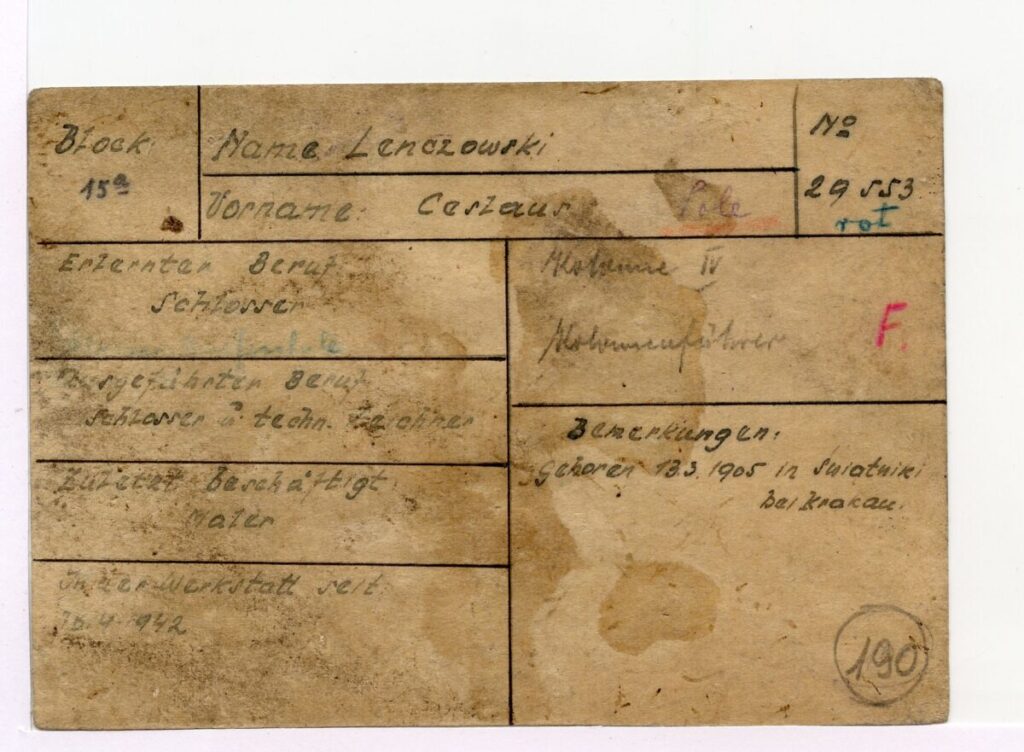 Block
15a
Name Lenczowski
Vorname: Ceslaus
Pole
No
29553
rot
Erlernter Beruf
Schlosser
Ausgeführter Beruf
Schlosser u. techn. Zeichner
Zuletzt beschäftigt
Maler
In der Werkstatt seit
16.4.1942
Kolonne IV
Kolonnenführer
F.
Bemerkungen:
Geboren 13.3.1905 in Swiatniki
bei Krakau.
190